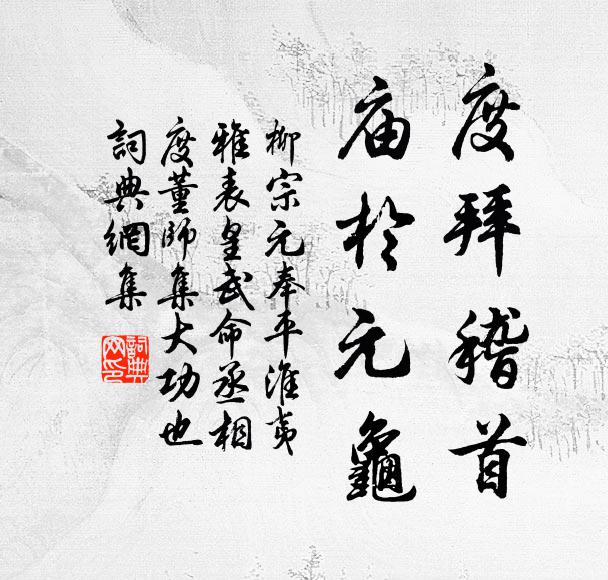 度拜稽首
庙於元龜
柳宗元奉平淮夷
雅表皇武命丞相
度董師集大功也
詞典網集
詞典
网印